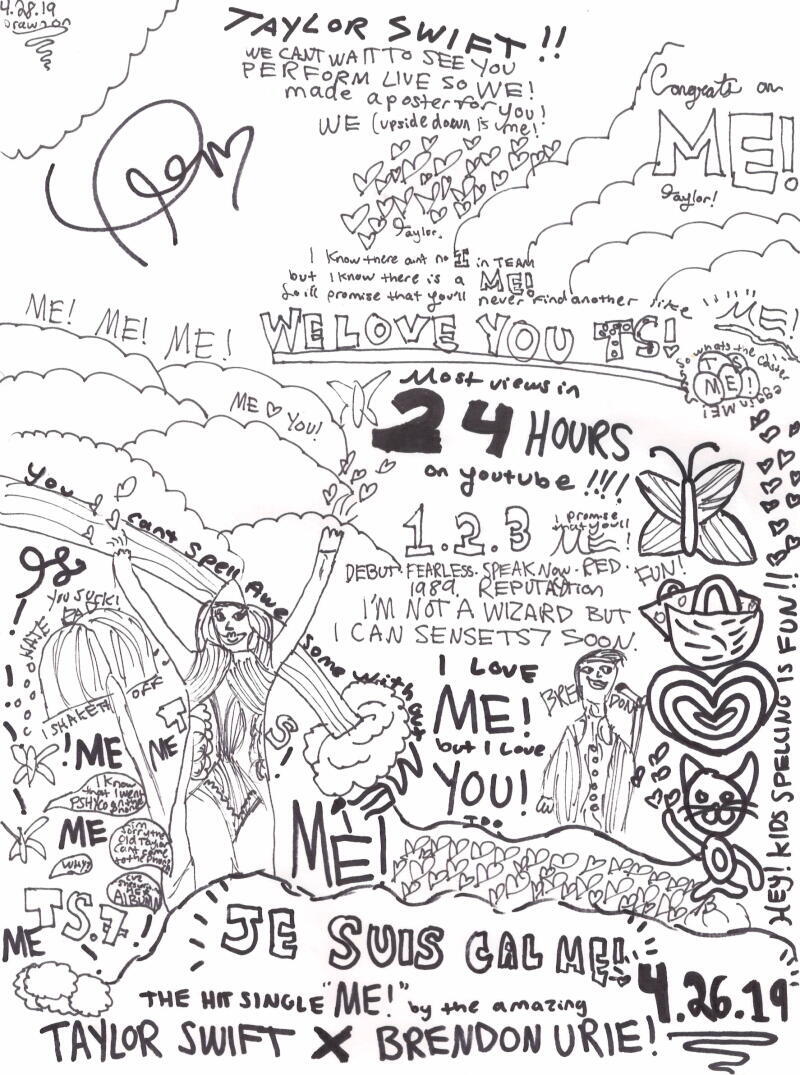 4.28.19
Drawn on
TAYLOR SWIFT!!
WE CANT WAIT TO SEE YOU
PERFORM LIVE SO WE!
made a poster for you!
WE (upside down is me!
Congrats on
ME!
Taylor!
Taylor.
I know there aint no I in TEAM
but I know there is a ME!
So ill promise that you'll never find another like
ME!
ME! ME! ME!
WE LOVE YOU TS!
So whats the easter
egg in ME!
TS
ME!
ME YOU!
Most views in
24 HOURS
on youtube!!!!
You cant spell Awesome without
ME!
1.2.3
I promise
that you'll
ME!
DEBUT. FEARLESS. SPEAK NOW. RED.
1989. REPUTATION
FUN!
I'M NOT A WIZARD BUT
I CAN SENSE TS7 SOON.
YOU SUCK!
HATE
I SHAKE IT OFF
I LOVE
ME!
but I love
YOU!
TOO
BRENDON
T
S!
!ME
ME
I know
that I went
PSHYCO on the
phone
ME
I'm
sorry the
Old Taylor
cant come
to the phone
Why?
ALBUM
TS.7!
ME
HEY! KIDS SPELLING IS FUN!!
JE SUIS CAL ME!
4.26.19
THE HIT SINGLE "ME!" by the amazing
TAYLOR SWIFT X BRENDON URIE!